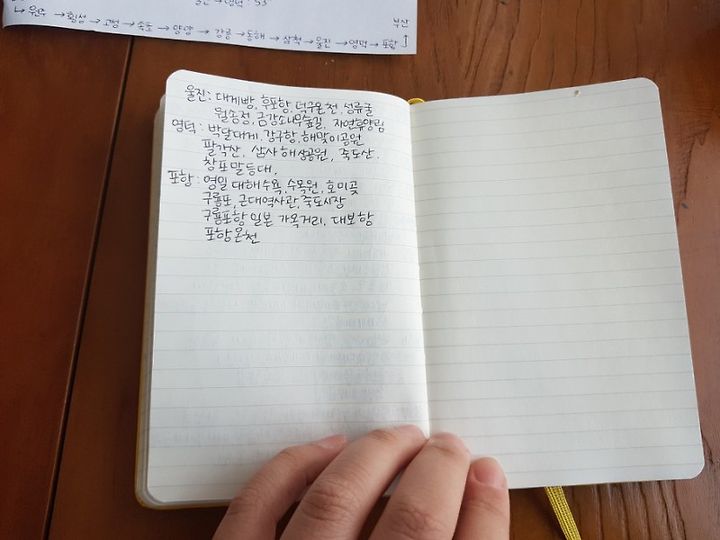 울진→영덕 : 53
↳ 원주 → 횡성 → 고성 → 속초 → 양양 → 강릉 → 동해 → 삼척 → 울진 → 영덕 → 포항
부산
울진 : 대게빵, 후포항, 덕구온천, 성류굴
월송정, 금강소나무숲길, 자연휴양림
영덕 : 박달대게, 강구항, 해맞이공원
팔각산, 삼사해상공원, 죽도산,
창포말등대,
포항 : 영일대해수욕, 수목원, 호미곶
구룡포, 근대역사관, 죽도시장
구룡포항 일본 가옥거리, 대보항
포항온천